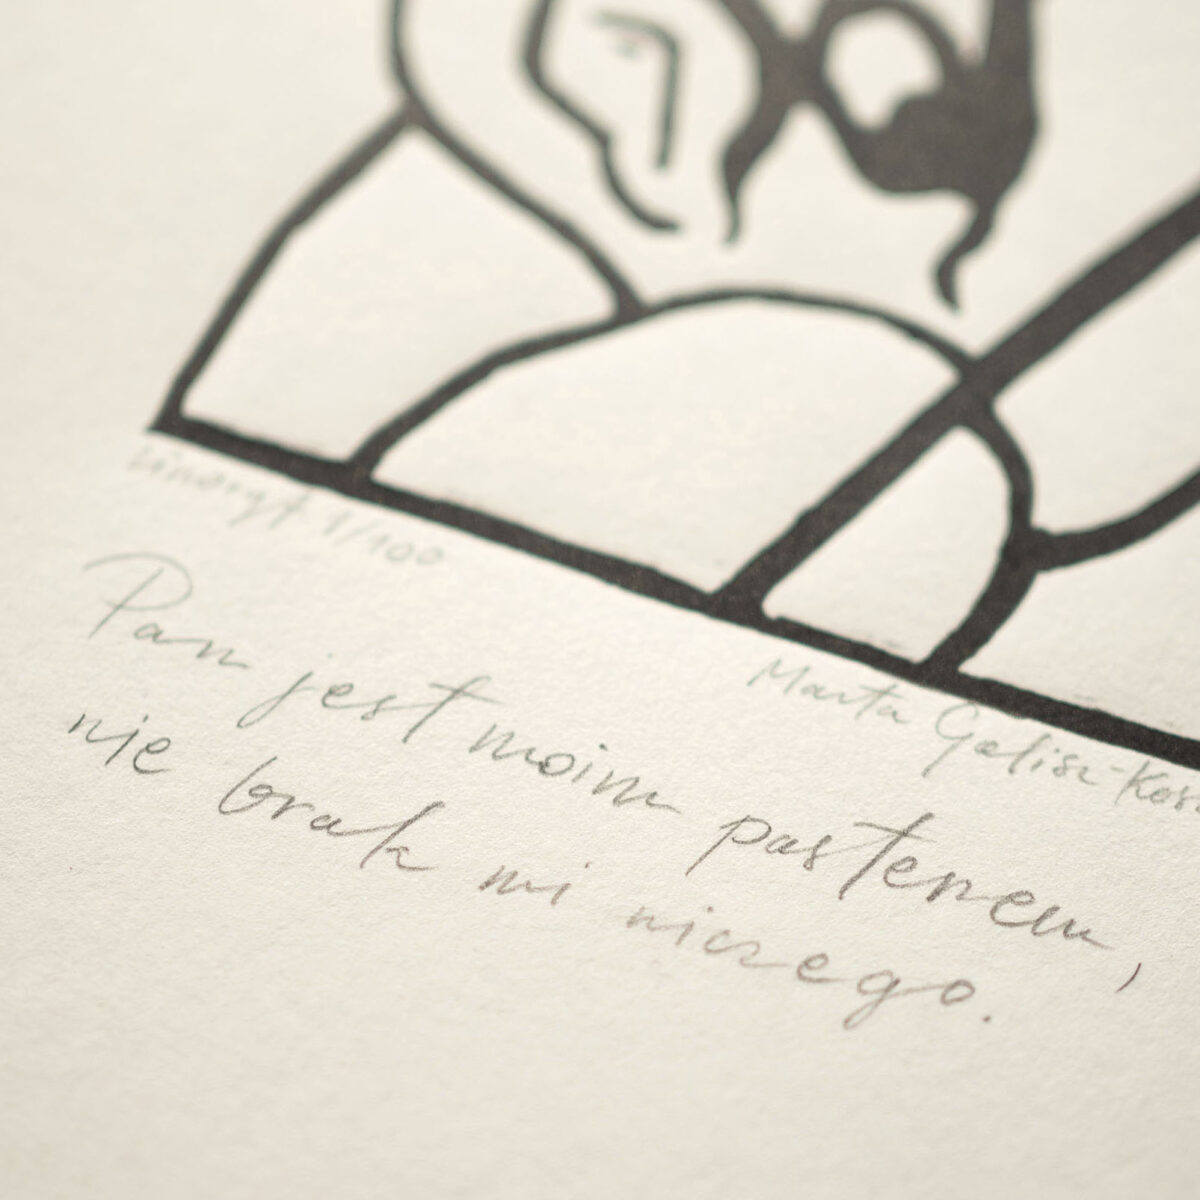 linoryt 1/100
Marta Galisz-Kos
Pan jest moim pasterzem,
nie brak mi niczego.